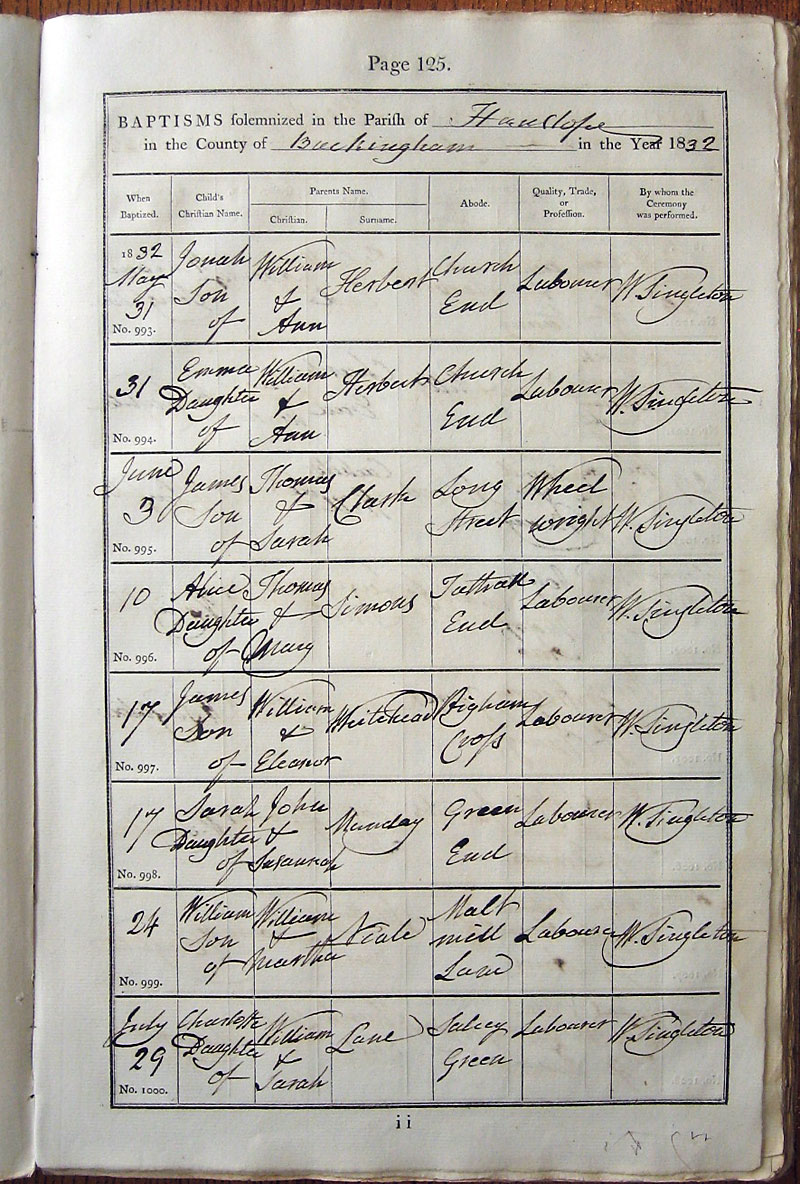 Page 125.
BAPTISMS solemnized in the Parish of Hanslope
in the County of Buckingham in the Year 1832
When Baptized. Child's Christian Name. Parents Name. Abode. Quality, Trade, or Profession. By whom the Ceremony was performed.
Christian. Surname.
1832 May 31 No. 993. Jonah Son of William & Ann Herbert Church End Labourer W. Singleton
31 No. 994. Emma Daughter of William & Ann Herbert Church End Labourer W. Singleton
June 3 No. 995. James Son of Thomas & Sarah Clark Long Street Wheel wright W. Singleton
10 No. 996. Alice Daughter of Thomas & Mary Simons Tathall End Labourer W. Singleton
17 No. 997. James Son of William & Eleanor Whitehead Cross Labourer W. Singleton
17 No. 998. Sarah Daughter of John & Susannah Munday Green End Labourer W. Singleton
24 No. 999. William Son of William & Martha Neale Malt mill Lane Labourer W. Singleton
July 29 No. 1000. Charlotte Daughter of William & Sarah Lane Salcey Green Labourer W. Singleton
ii